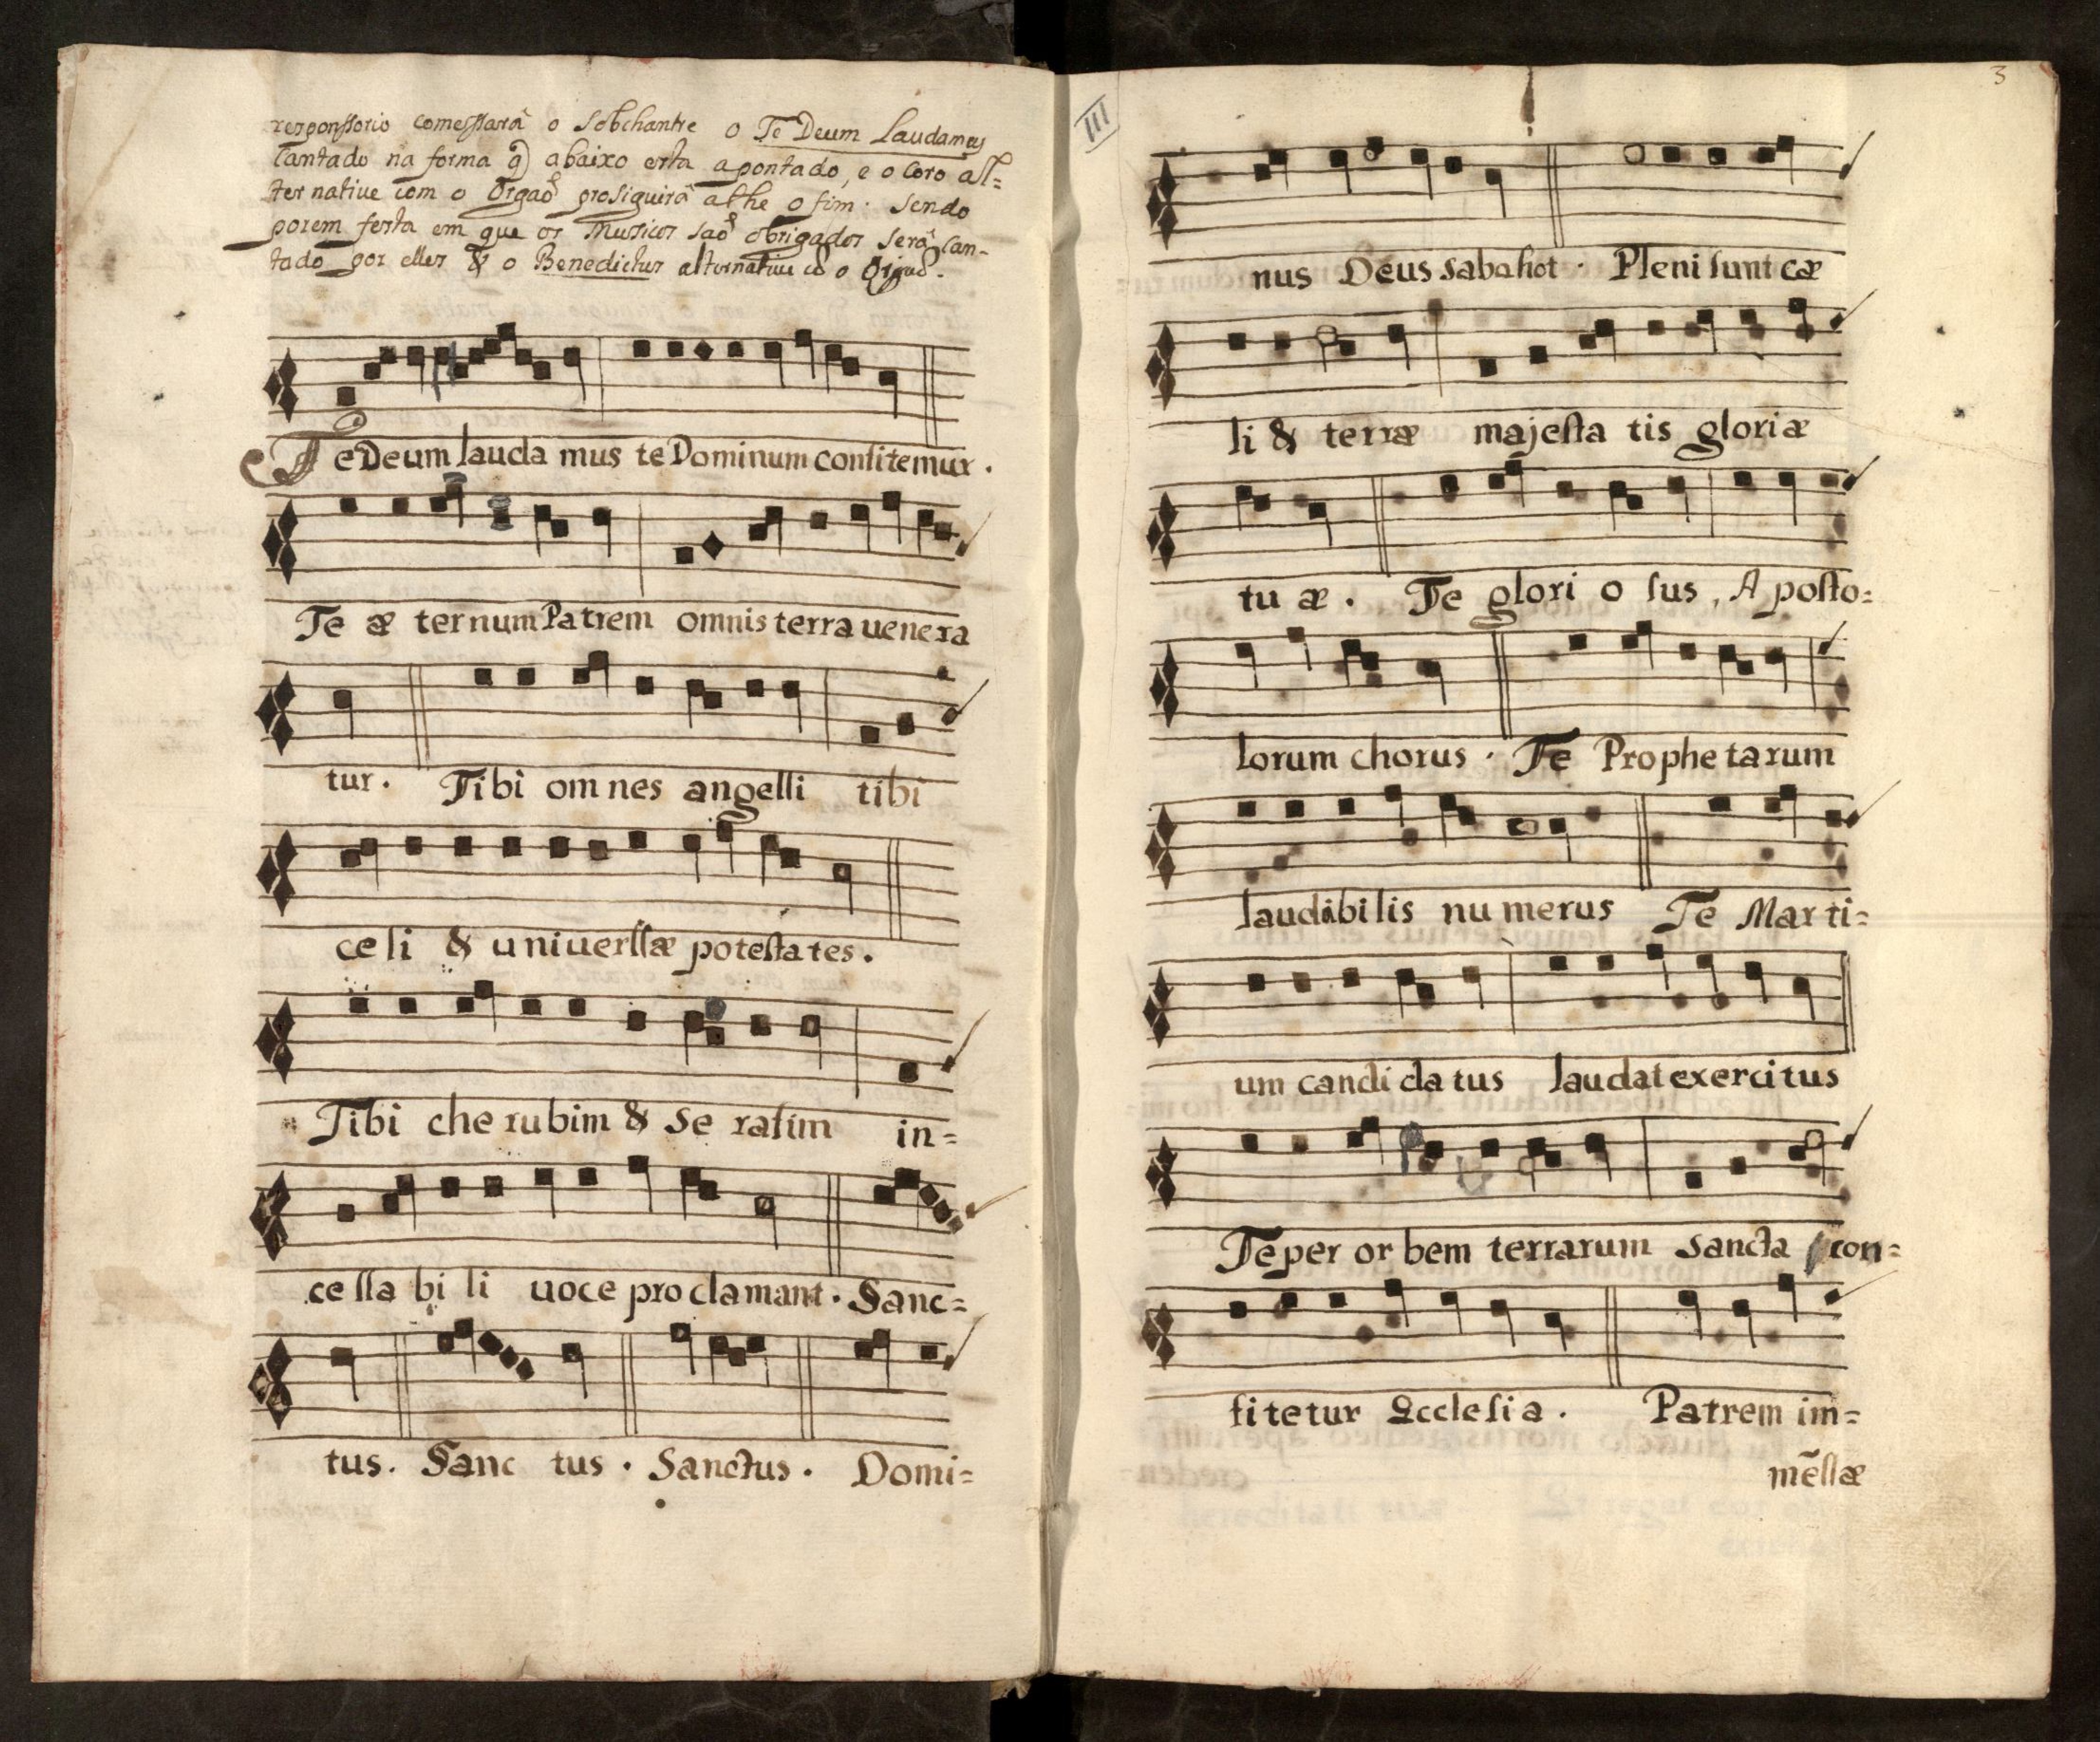 responssorio comessará o sobchantre o Te Deum Laudamus
Cantado na forma q̃ abaixo esta apontado, e o Coro al=
ternative com o Orgaõ prosiguirá athe o fim. Sendo
porem festa em que os Musicos saõ obrigados será Can-
tado por elles & o Benedictus alternatiue cõ o Orgaõ.
Te Deum lauda mus te Dominum confitemur.
Te æ ternum Patrem omnis terra uenera
tur. Tibi om nes angelli tibi
celi & uniuerssæ potestates.
Tibi che rubim & Se rafim in=
ce ssa bi li uoce proclamant. Sanc=
tus. Sanc tus. Sanctus. Domi=
III
3
nus Deus sabahot. Pleni sunt cæ
li & terræ majesta tis gloriæ
tu æ. Te glori o sus, A posto=
lorum chorus. Te Prophetarum
laudabilis numerus Te Marti=
um candidatus laudat exercitus
Te per orbem terrarum sancta con=
fitetur Ecclesia. Patrem im=
mẽssæ